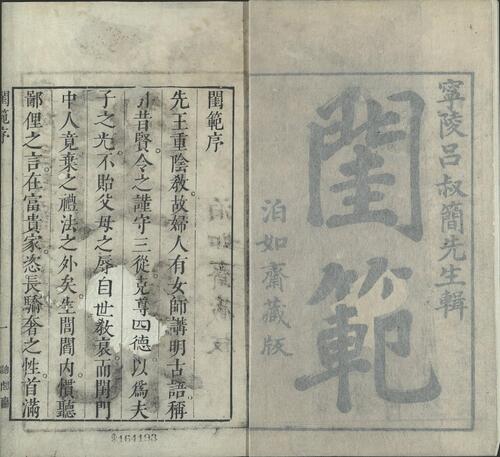 寧陵呂叔簡先生輯
閨範
泊如齋藏版
閨範序
先王重陰教故婦人有女師講明古語稱
引昔賢令之謹守三從克尊四德以為夫
子之光不貽父母之辱自世教衰而閨門
中人竟棄之禮法之外矣生閭閻内慣聽
鄙俚之言在富貴家恣長驕奢之性首滿
閨範序
一
164193